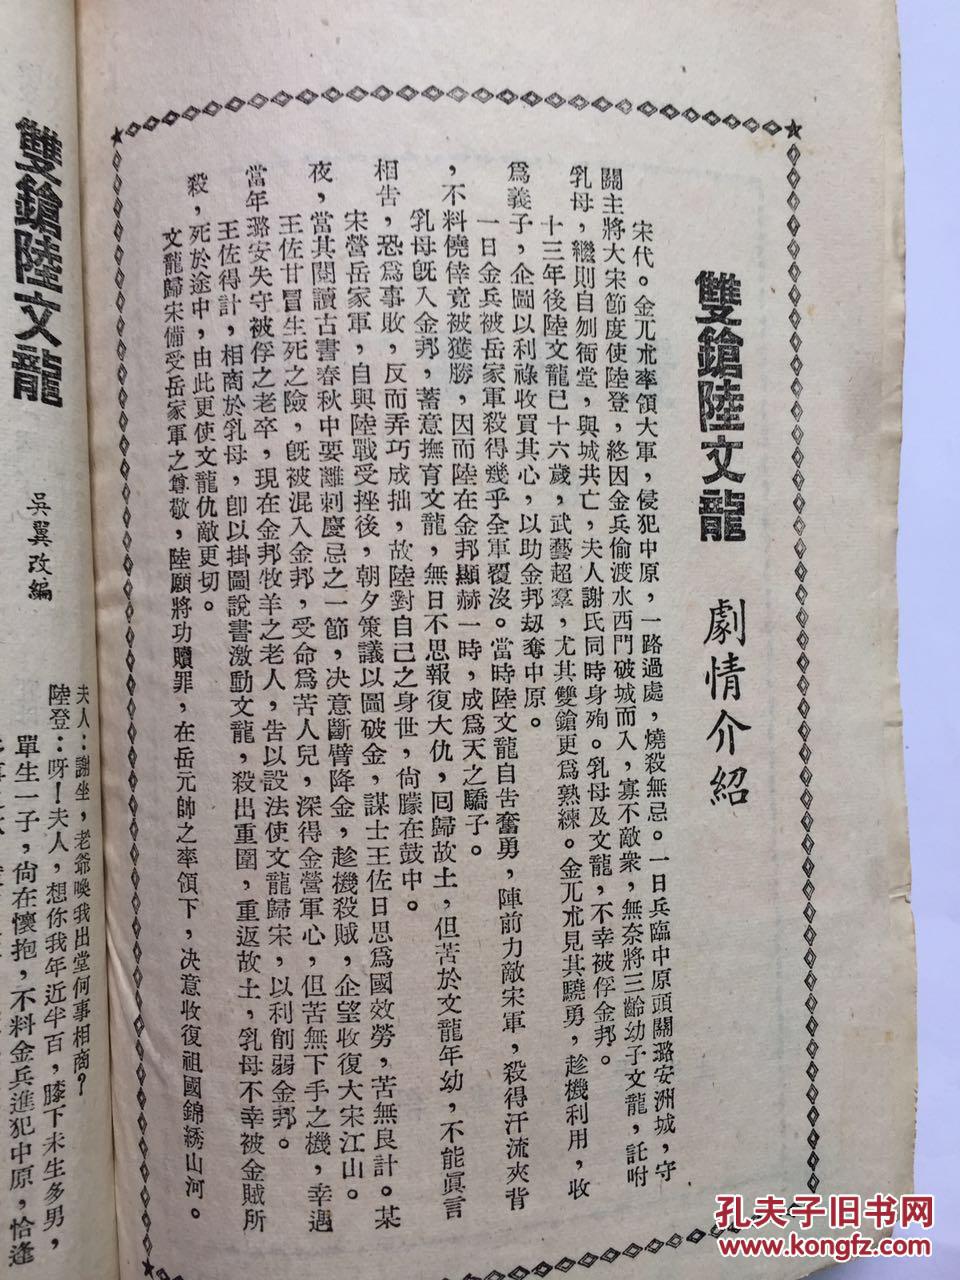 雙鎗陸文龍　劇情介紹
宋代。金兀朮率領大軍，侵犯中原，一路過處，燒殺無忌。一日兵臨中原頭關潞安洲城，守
關主將大宋節度使陸登，終因金兵偷渡水西門破城而入，寡不敵衆，無奈將三齡幼子文龍，託咐
乳母，繼則自刎衙堂，與城共亡，夫人謝氏同時身殉。乳母及文龍，不幸被俘金邦。
十三年後陸文龍已十六歲，武藝超羣，尤其雙鎗更爲熟練。金兀朮見其驍勇，趁機利用，收
爲義子，企圖以利祿收買其心，以助金邦刼奪中原。
一日金兵被岳家軍殺得幾乎全軍覆沒。當時陸文龍自告奮勇，陣前力敵宋軍，殺得汗流夾背
，不料僥倖竟被獲勝，因而陸在金邦顯赫一時，成爲天之驕子。
乳母旣入金邦，蓄意撫育文龍，無日不思報復大仇，囘歸故土，但苦於文龍年幼，不能眞言
相告，恐爲事敗，反而弄巧成拙，故陸對自己之身世，尙朦在鼓中。
宋營岳家軍，自與陸戰受挫後，朝夕策議以圖破金，謀士王佐日思爲國效勞，苦無良計。某
夜，當其閱讀古書春秋中要離刺慶忌之一節，决意斷臂降金，趁機殺賊，企望收復大宋江山。
王佐甘冒生死之險，旣被混入金邦，受命爲苦人兒，深得金營軍心，但苦無下手之機，幸遇
當年潞安失守被俘之老卒，現在金邦牧羊之老人，告以設法使文龍歸宋，以利削弱金邦。
王佐得計，相商於乳母，卽以掛圖說書激動文龍，殺出重圍，重返故土，乳母不幸被金賊所
殺，死於途中，由此更使文龍仇敵更切。
文龍歸宋備受岳家軍之尊敬，陸願將功贖罪，在岳元帥之率領下，决意收復祖國錦綉山河。
雙鎗陸文龍
吳翼改編
夫人：謝坐，老爺喚我出堂何事相商？
陸登：呀！夫人，想你我年近半百，膝下未生多男，
單生一子，尙在懷抱，不料金兵進犯中原，恰逢
孔夫子旧书网
www.kongfz.com